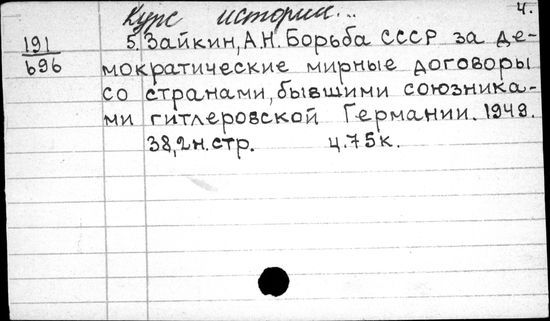 Курс истории... 4.
191 5. Зайкин, А.Н. Борьба СССР за де-
696 мократические мирные договоры
со странами, бывшими союзника-
ми гитлеровской Германии. 1949.
38, 2 н. стр. ц. 75 к.